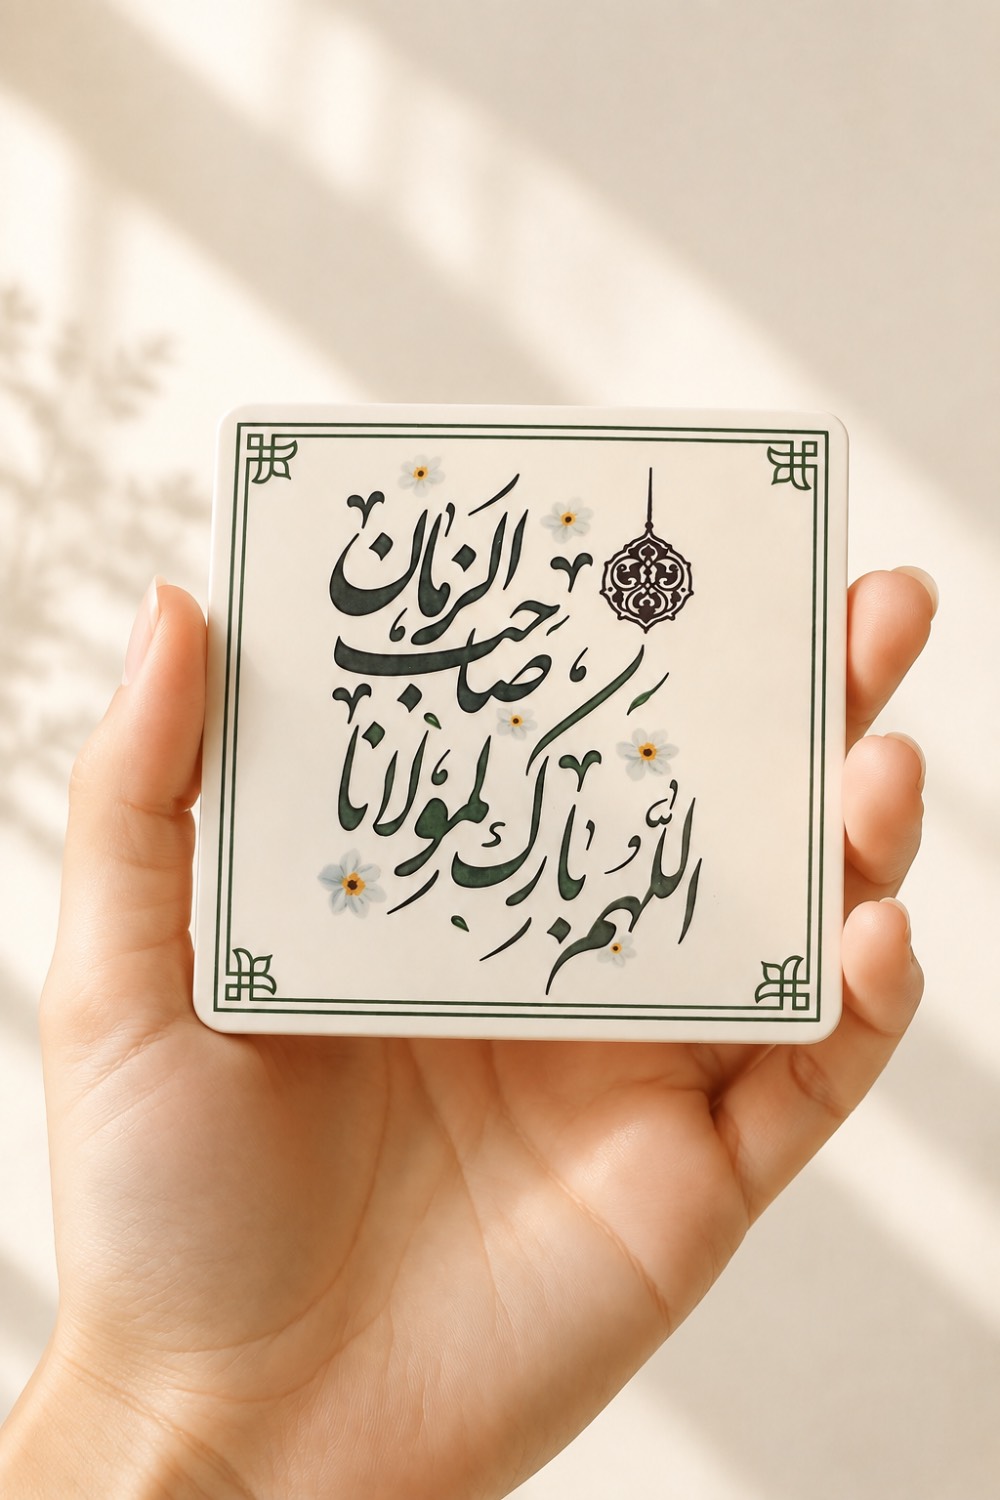 اللّهُمَّ بارِك لِمولانا
صاحب
الزمان